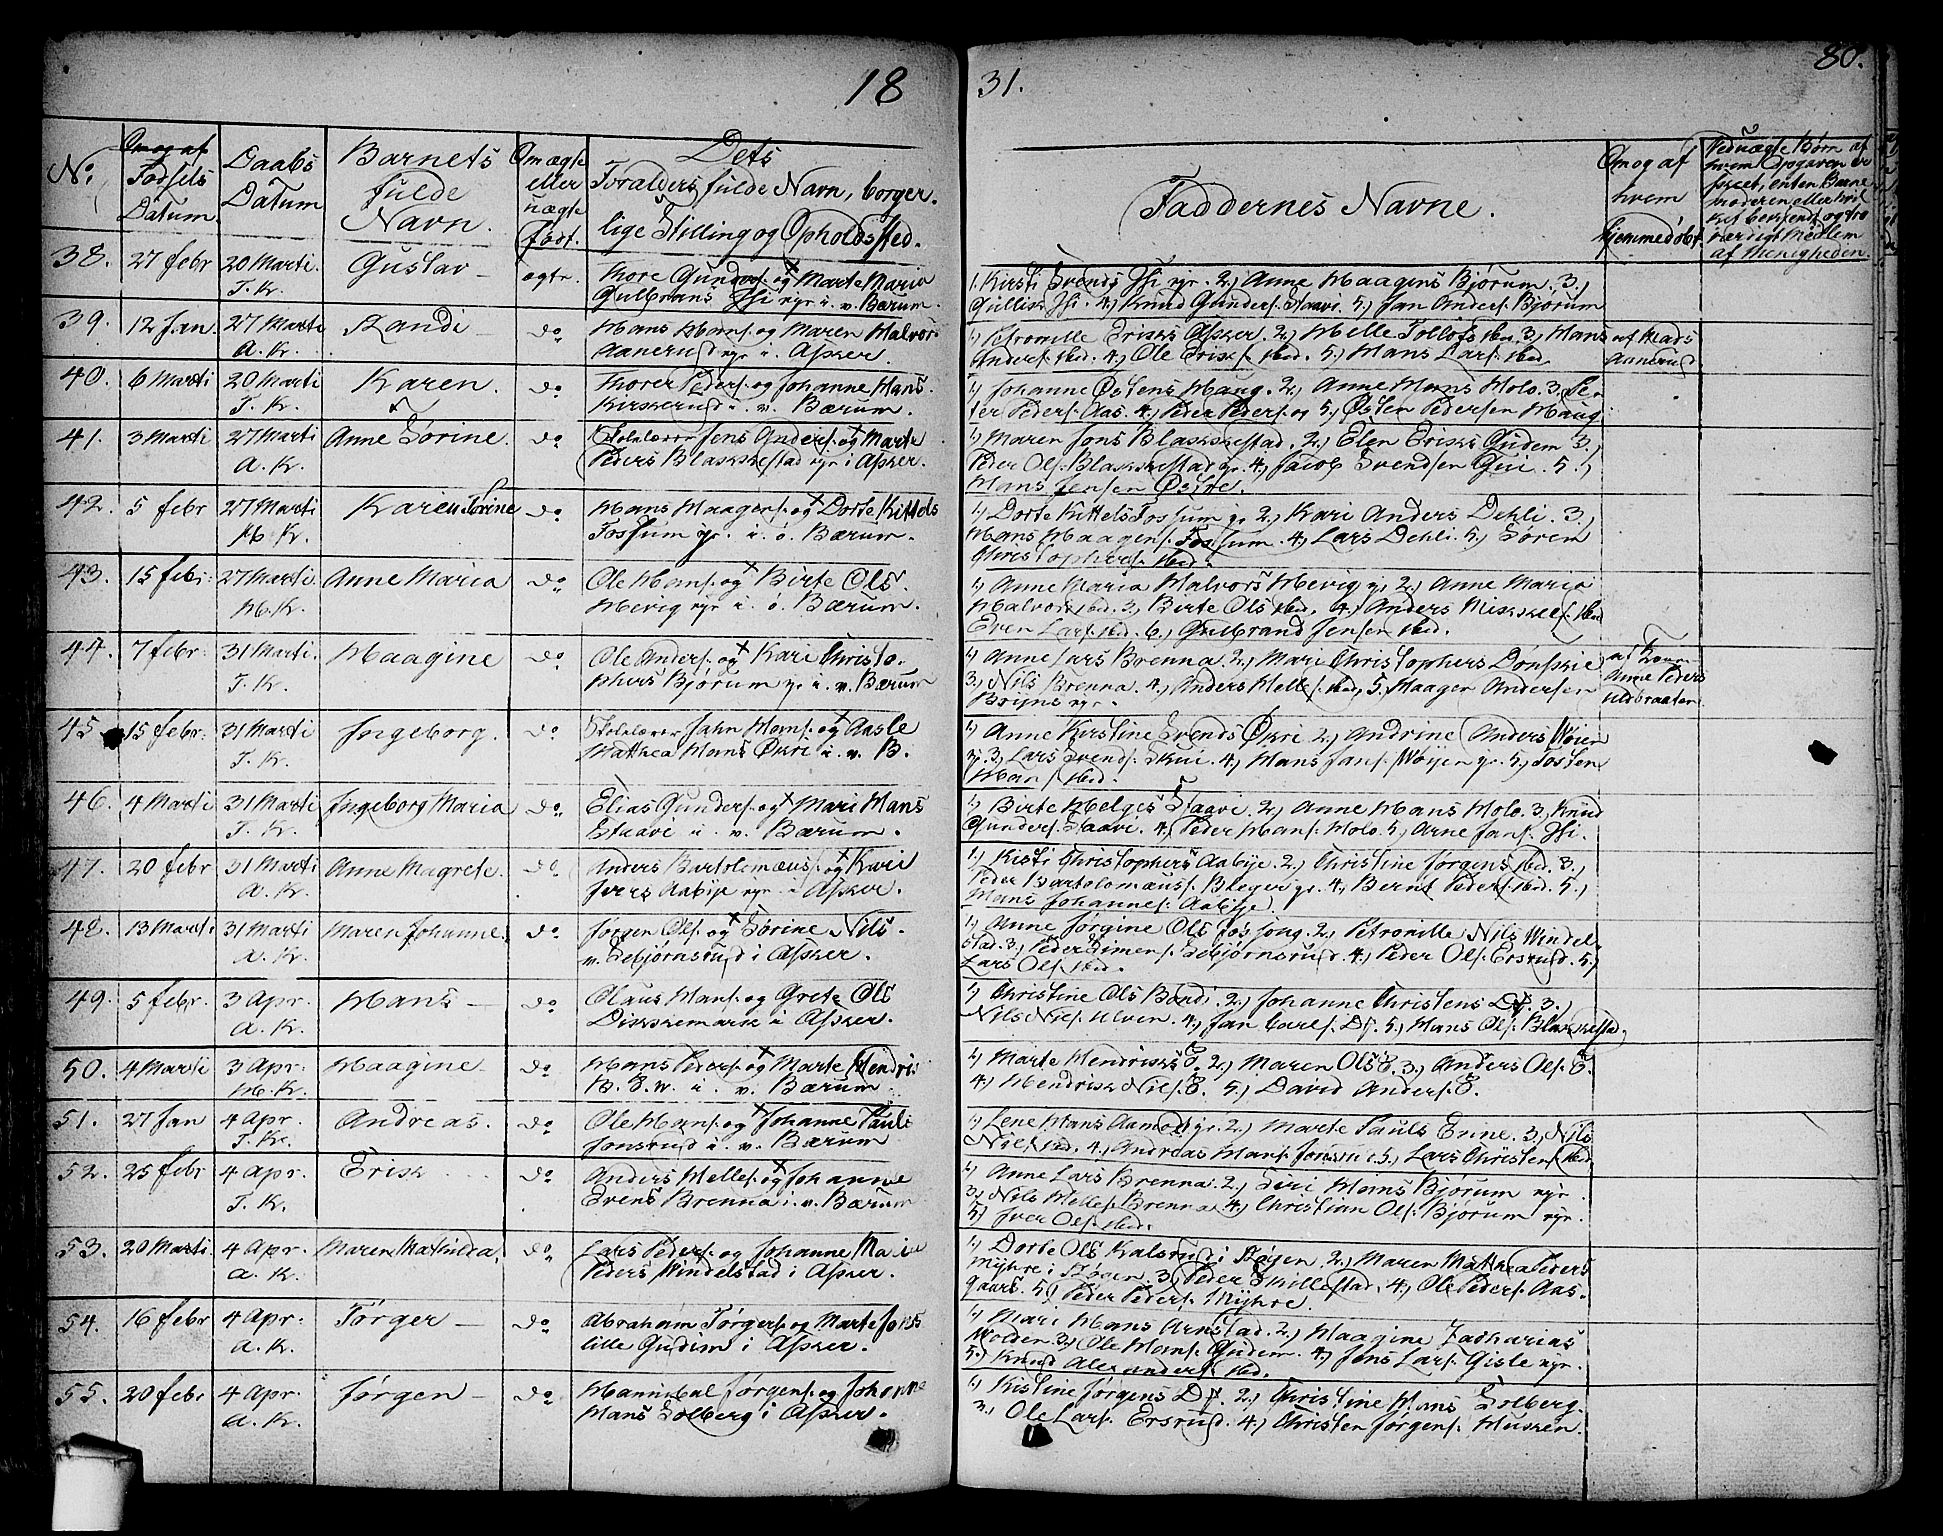 18
31.
80.
No.
Om og af
Fødsels
Datum.
Daabs
Datum
Barnets
fulde
Navn.
Om ægte
eller
uægte
født.
Dets
Forælders fulde Navn, borger-
lige Stilling og Opholdssted.
Faddernes Navne.
Om og af
hvem
hjemmedøbt.
38. 27 febr 20 Marti. Gustav - ægte.
T. K.
Gulbrans
i v. Bærum.
1. Kirsti Svends 2.) Anne Haagens Bjørum. 3.)
4.) Knud Gunders. Staavi. 5.) Jan Anders. Bjørum
39. 12 Jan. 27 Marti Randi - do Hans Hans. og Maren Halvors
A. K. Aanerud i Asker.
1.) Petronille Eriks Asker. 2.) Helle Tollofs ibid. 3.) Hans
Anders. ibid. 4.) Ole Eriks. ibid. 5.) Hans Lars. ibid.
Aanerud.
40. 6 Marti 20 Marti Karen. do Thorer Peders. og Johanne Hans
T. K. Kirkerud i. v. Bærum.
1.) Johanne Østens Haug. 2.) Anne Hans Holo. 3.) Pe-
ter Peders. Aas. 4.) Peder Peders. og 5.) Østen Pedersen Haug.
41. 3 Marti 27 Marti Anne Sørine. do Skolelærer Jens Anders. og Marte
A. K. Peders Blakkestad i Asker.
1.) Maren Jons Blakkestad. 2.) Elen Eriks Gudem 3.)
Peder Ols. Blakkestad 4.) Jacob Svendsen 5.)
Hans Jensen
42. 5 febr 27 Marti Karen Sørine do Hans Haagens. og Dorte Kittels
H. K. Fossum i. ø. Bærum.
1.) Dorte Kittels Fossum 2.) Kari Anders Dehli. 3.)
Hans Haagens. Fossum. 4.) Lars Dehli. 5.) Søren
Christophers. ibid.
43. 15 febr. 27 Marti Anne Maria do Ole Hans. og Birte Ols
H. K. Hevig i. ø. Bærum.
1.) Anne Maria Halvors Hevig 2.) Anne Maria
Halvors ibid. 3.) Birte Ols ibid. 4.) Anders ibid
Even Lars. ibid. 6.) Gulbrand Jensen ibid.
44. 7 febr. 31 Marti. Haagine do Ole Anders. og Kari Christo-
T. K. phers Bjørum i. v. Bærum
1.) Anne Lars Brenna. 2.) Mari Christophers Dønskie
3.) Nils Brenna. 4.) Anders Helles. ibid. 5. Haagen Andersen
Anne Peders
45. 15 febr. 31 Marti Ingeborg. do Skolelærer Jahn Hans. og Aasle
T. K. Mathea Hans Økri i. v. B.
1.) Anne Kirstine Svends Økri 2.) Andrine Anders Wøien
3.) Lars Svends. Skui. 4.) Hans Jans. Wøyen 5.) Tosten
Hans. ibid.
46. 4 Marti 31 Marti Ingeborg Maria do Elias Gunders. og Mari Hans
T. K. Staavi i. v. Bærum.
1.) Birte Helges Staavi. 2.) Anne Hans Holo. 3.) Knud
Gunders. Staavi. 4.) Peder Hans. Holo. 5.) Arne Jans.
47. 20 febr 31 Marti Anne Magrete. do Anders Bartolomæus. og Kari
A. K. Ivers Aabye i Asker.
1.) Kisti Christophers Aabye. 2.) Christine Jørgens ibid. 3.)
Peder Bartolomæus. 4.) Bernt Peders. ibid. 5.)
Hans Johannes. Aabye.
48. 13 Marti 31 Marti Maren Johanne. do Jørgen Ols. og Sørine Nils
A. K. v. Sebjørnsrud i Asker.
1.) Anne Jørgine Ols 2.) Petronille Nils Windel-
stad. 3.) Peder Simens. Sebjørnsrud. 4.) Peder Ols. Ersrud. 5.)
Lars Ols. ibid.
49. 5 febr. 3 Apr. Hans - do Olaus Hans. og Grete Ols
A. K. Dikkemark i Asker.
1.) Christine Ols Bondi. 2.) Johanne Christens D. 3.)
Nils Niels. Ulven. 4.) Jan Carls. D. 5.) Hans Ols. Blakkestad.
50. 4 Marti 3 Apr. Haagine - do Hans Peders. og Marte Hendriks
H. K. i. v. Bærum
1.) Marte Hendriks E. 2.) Maren Ols E. 3.) Anders Ols. E.
4.) Hendrik Niels. E. 5.) David Anders. E.
51. 27 Jan 4 Apr. Andreas. do Ole Hans. og Johanne Pauls
T. K. Jonsrud i. v. Bærum
1.) Lene Hans Aamodt 2.) Marte Pauls Erine. 3.) Nils
Niels. ibid. 4.) Andreas Hans. 5.) Lars Christens. ibid.
52. 25 febr 4 Apr. Erik do Anders Helles. og Johanne
T. K. Evens Brenna i. v. Bærum
1.) Anne Lars Brenna. 2.) Siri Hans Bjørum
3.) Nils Helles. Brenna 4.) Christian Ols. Bjørum
5.) Iver Ols. ibid.
53. 20 Marti 4 Apr. Maren Mathilda. do Lars Peders. og Johanne Marie
A. K. Peders Windelstad i Asker.
1.) Dorte Ols Kalsrud i Røgen. 2.) Maren Mathea Peders
Myhre i Røgen. 3.) Peder Skillestad. 4.) Ole Peders. Aas-
gaard. 5.) Peder Peders. Myhre.
54. 16 febr 4 Apr. Tørger - do Abraham Tørgers. og Marte Jons
A. K. lille Gudim i Asker.
1.) Mari Hans Arnstad. 2.) Haagine Zacharias
Wolden. 3.) Ole Hans. Gudem. 4.) Jens Lars. Gisle
5.) Knud Alexanders. ibid.
55. 20 febr 4 Apr. Jørgen - do Hannibal Jørgens. og Johanne
A. K. Hans Solberg i Asker.
1.) Kistine Jørgens D. 2.) Christine Hans Solberg.
3.) Ole Lars. Ersrud. 4.) Christen Jørgens. Husken.